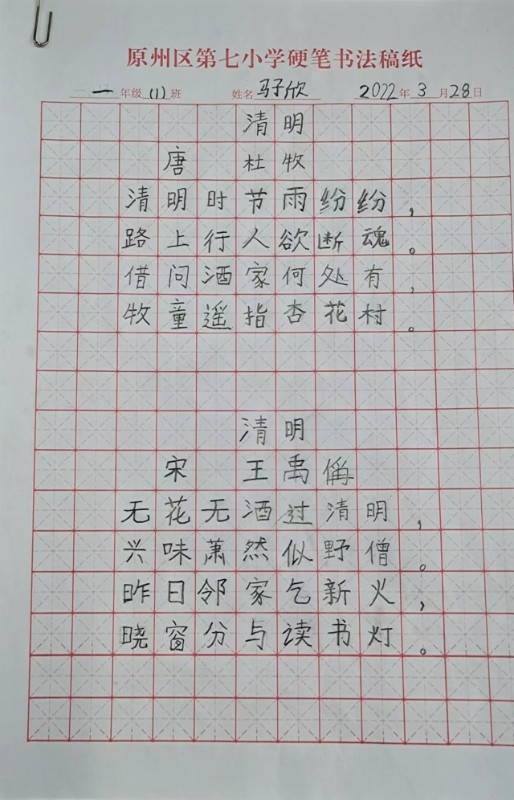 原州区第七小学硬笔书法稿纸
一年级(1)班 姓名 马子欣 2022年3月28日
清明
唐 杜牧
清明时节雨纷纷，
路上行人欲断魂。
借问酒家何处有，
牧童遥指杏花村。
清明
宋 王禹偁
无花无酒过清明，
兴味萧然似野僧。
昨日邻家乞新火，
晓窗分与读书灯。